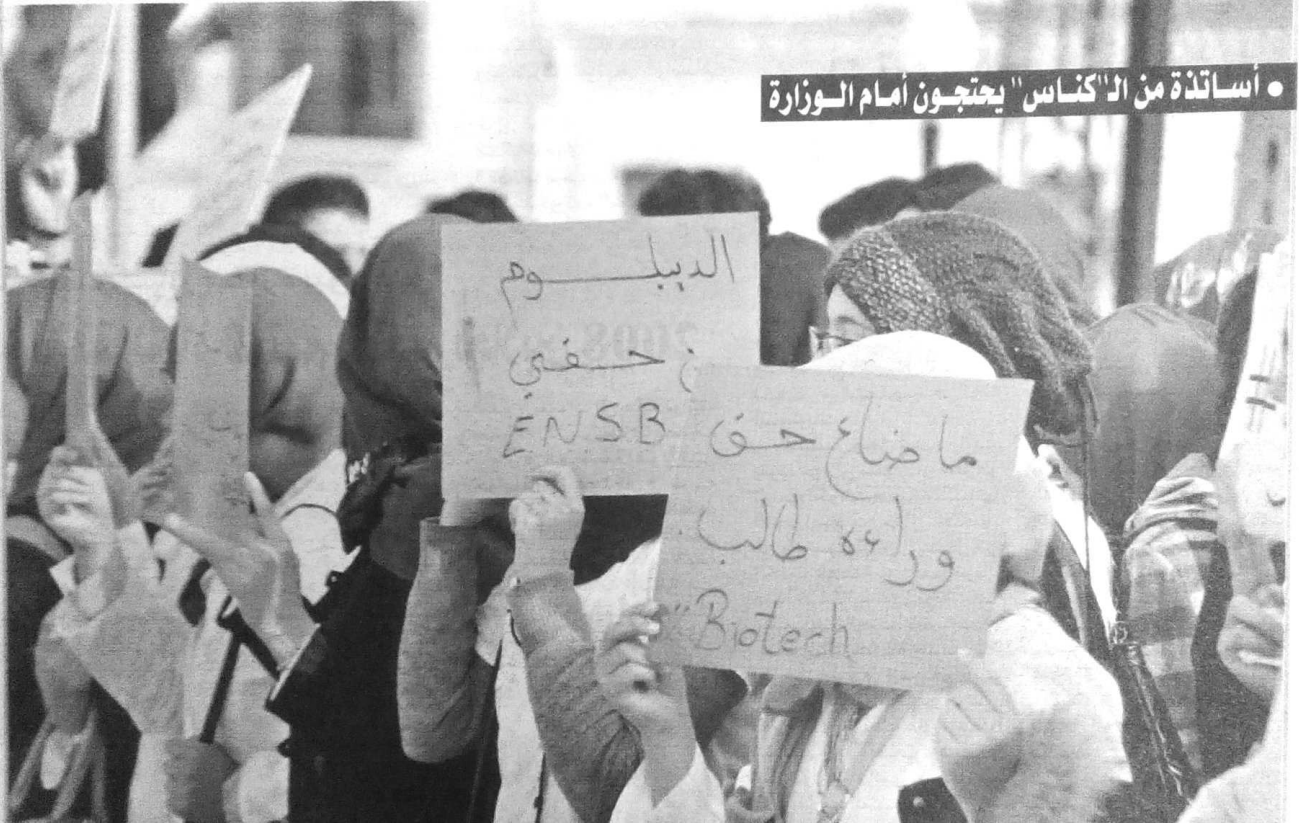 • أساتذة من الـ"كناس" يحتجون أمام الوزارة
الديبلوم
حقي
ENSB
ما ضاع حق
وراءه طالب
"Biotech